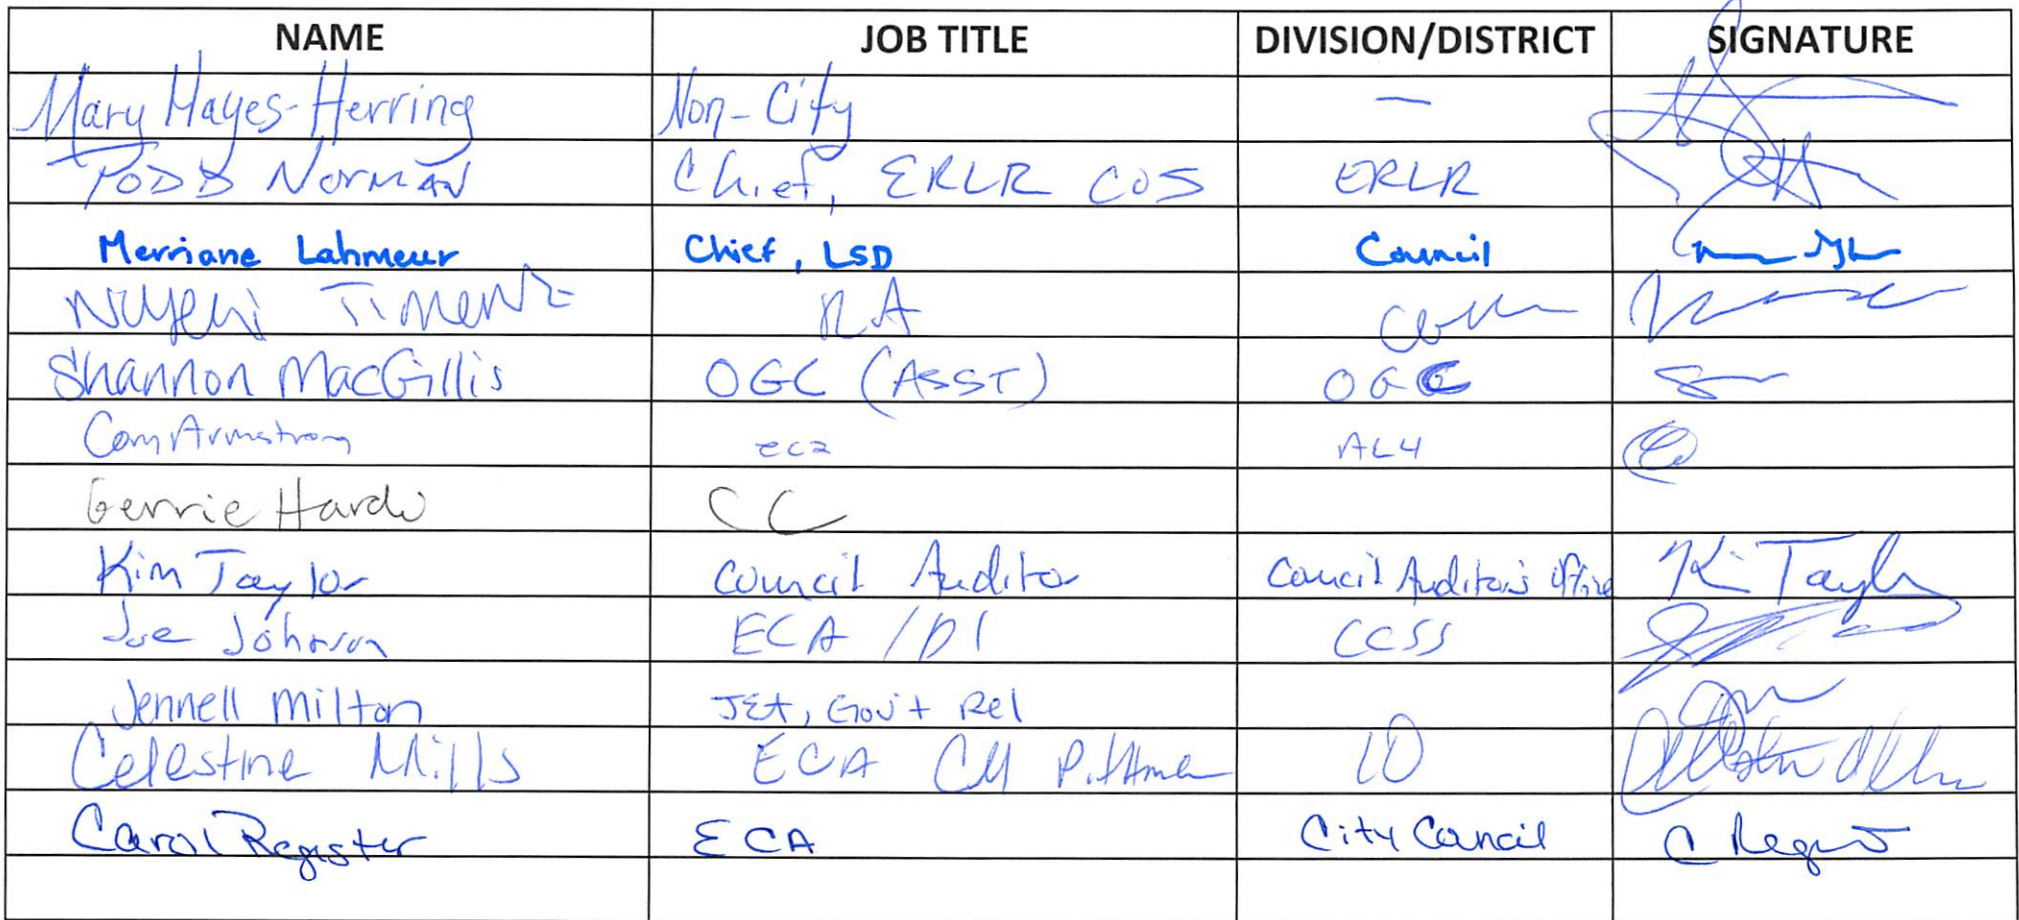 NAME JOB TITLE DIVISION/DISTRICT SIGNATURE
Mary Hayes-Herring Non-City —
TODD NORMAN Chief, ERLR COS ERLR
Merriane Lahmeur Chief, LSD Council
RA
Shannon MacGillis OGC (ASST) OGC
Armstrong eca AL4
Gerrie CC
Kim Taylor Council Auditor Council Auditor's Office Kim Taylor
Joe Johnson ECA / D1 CCSS
Jennell Milton JEA, Gov't Rel
Celestine Mills ECA CM Pittman 10
Carol Register ECA City Council C Register